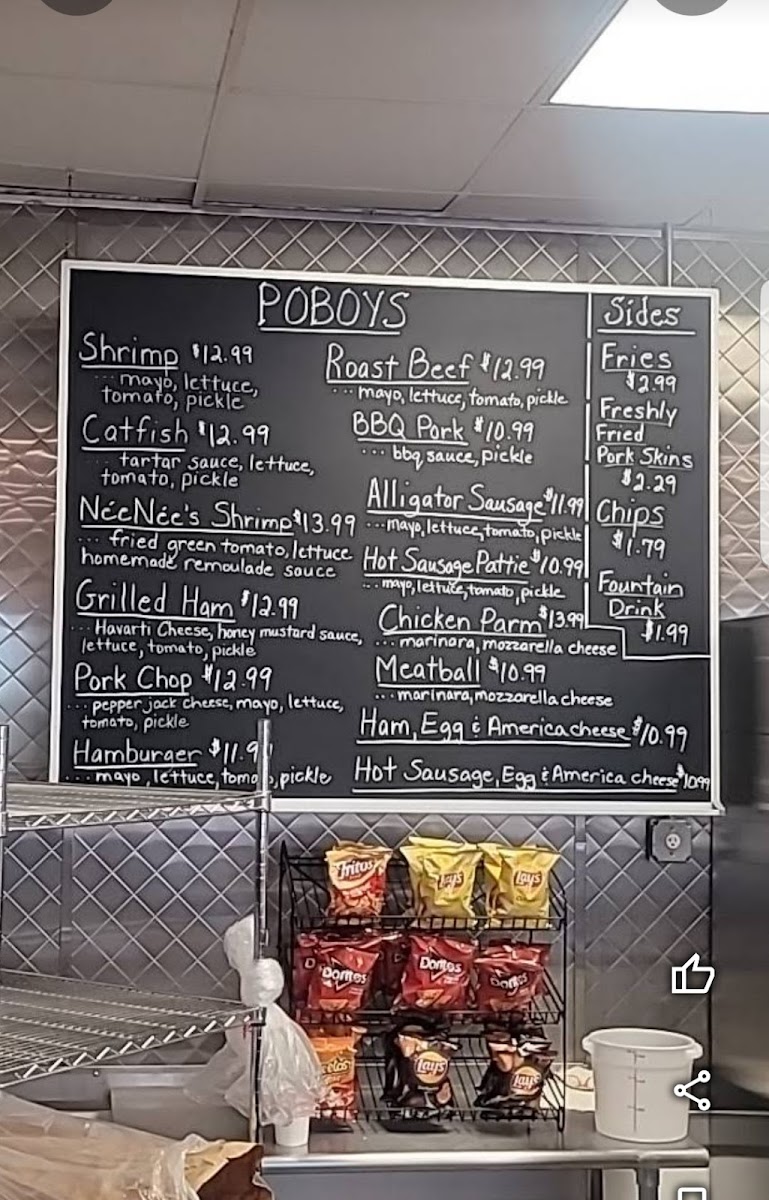 POBOYS
Shrimp $12.99
... mayo, lettuce,
tomato, pickle
Catfish $12.99
... tartar sauce, lettuce,
tomato, pickle
NéeNée's Shrimp $13.99
... fried green tomato, lettuce
homemade remoulade sauce
Grilled Ham $12.99
... Havarti Cheese, honey mustard sauce,
lettuce, tomato, pickle
Pork Chop $12.99
... pepper jack cheese, mayo, lettuce,
tomato, pickle
Hamburger $11.99
... mayo, lettuce, tomato, pickle
Roast Beef $12.99
... mayo, lettuce, tomato, pickle
BBQ Pork $10.99
... bbq sauce, pickle
Alligator Sausage $11.99
... mayo, lettuce, tomato, pickle
Hot Sausage Pattie $10.99
... mayo, lettuce, tomato, pickle
Chicken Parm $13.99
... marinara, mozzarella cheese
Meatball $10.99
... marinara, mozzarella cheese
Ham, Egg & America cheese $10.99
Hot Sausage, Egg & America cheese $10.99
Sides
Fries
$2.99
Freshly
Fried
Pork Skins
$2.29
Chips
$1.79
Fountain
Drink
$1.99
Fritos Lay's Lay's
Doritos Doritos Doritos
Lay's Lay's